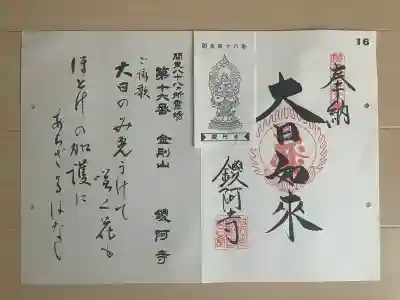 16
奉納
大日如來
鑁阿寺
関東第十六番
鑁阿寺
関東八十八カ所霊場
第十六番 金剛山 鑁阿寺
ご詠歌
大日のみ光うけて
咲く花も
ほとけの加護に
あらざるはなし